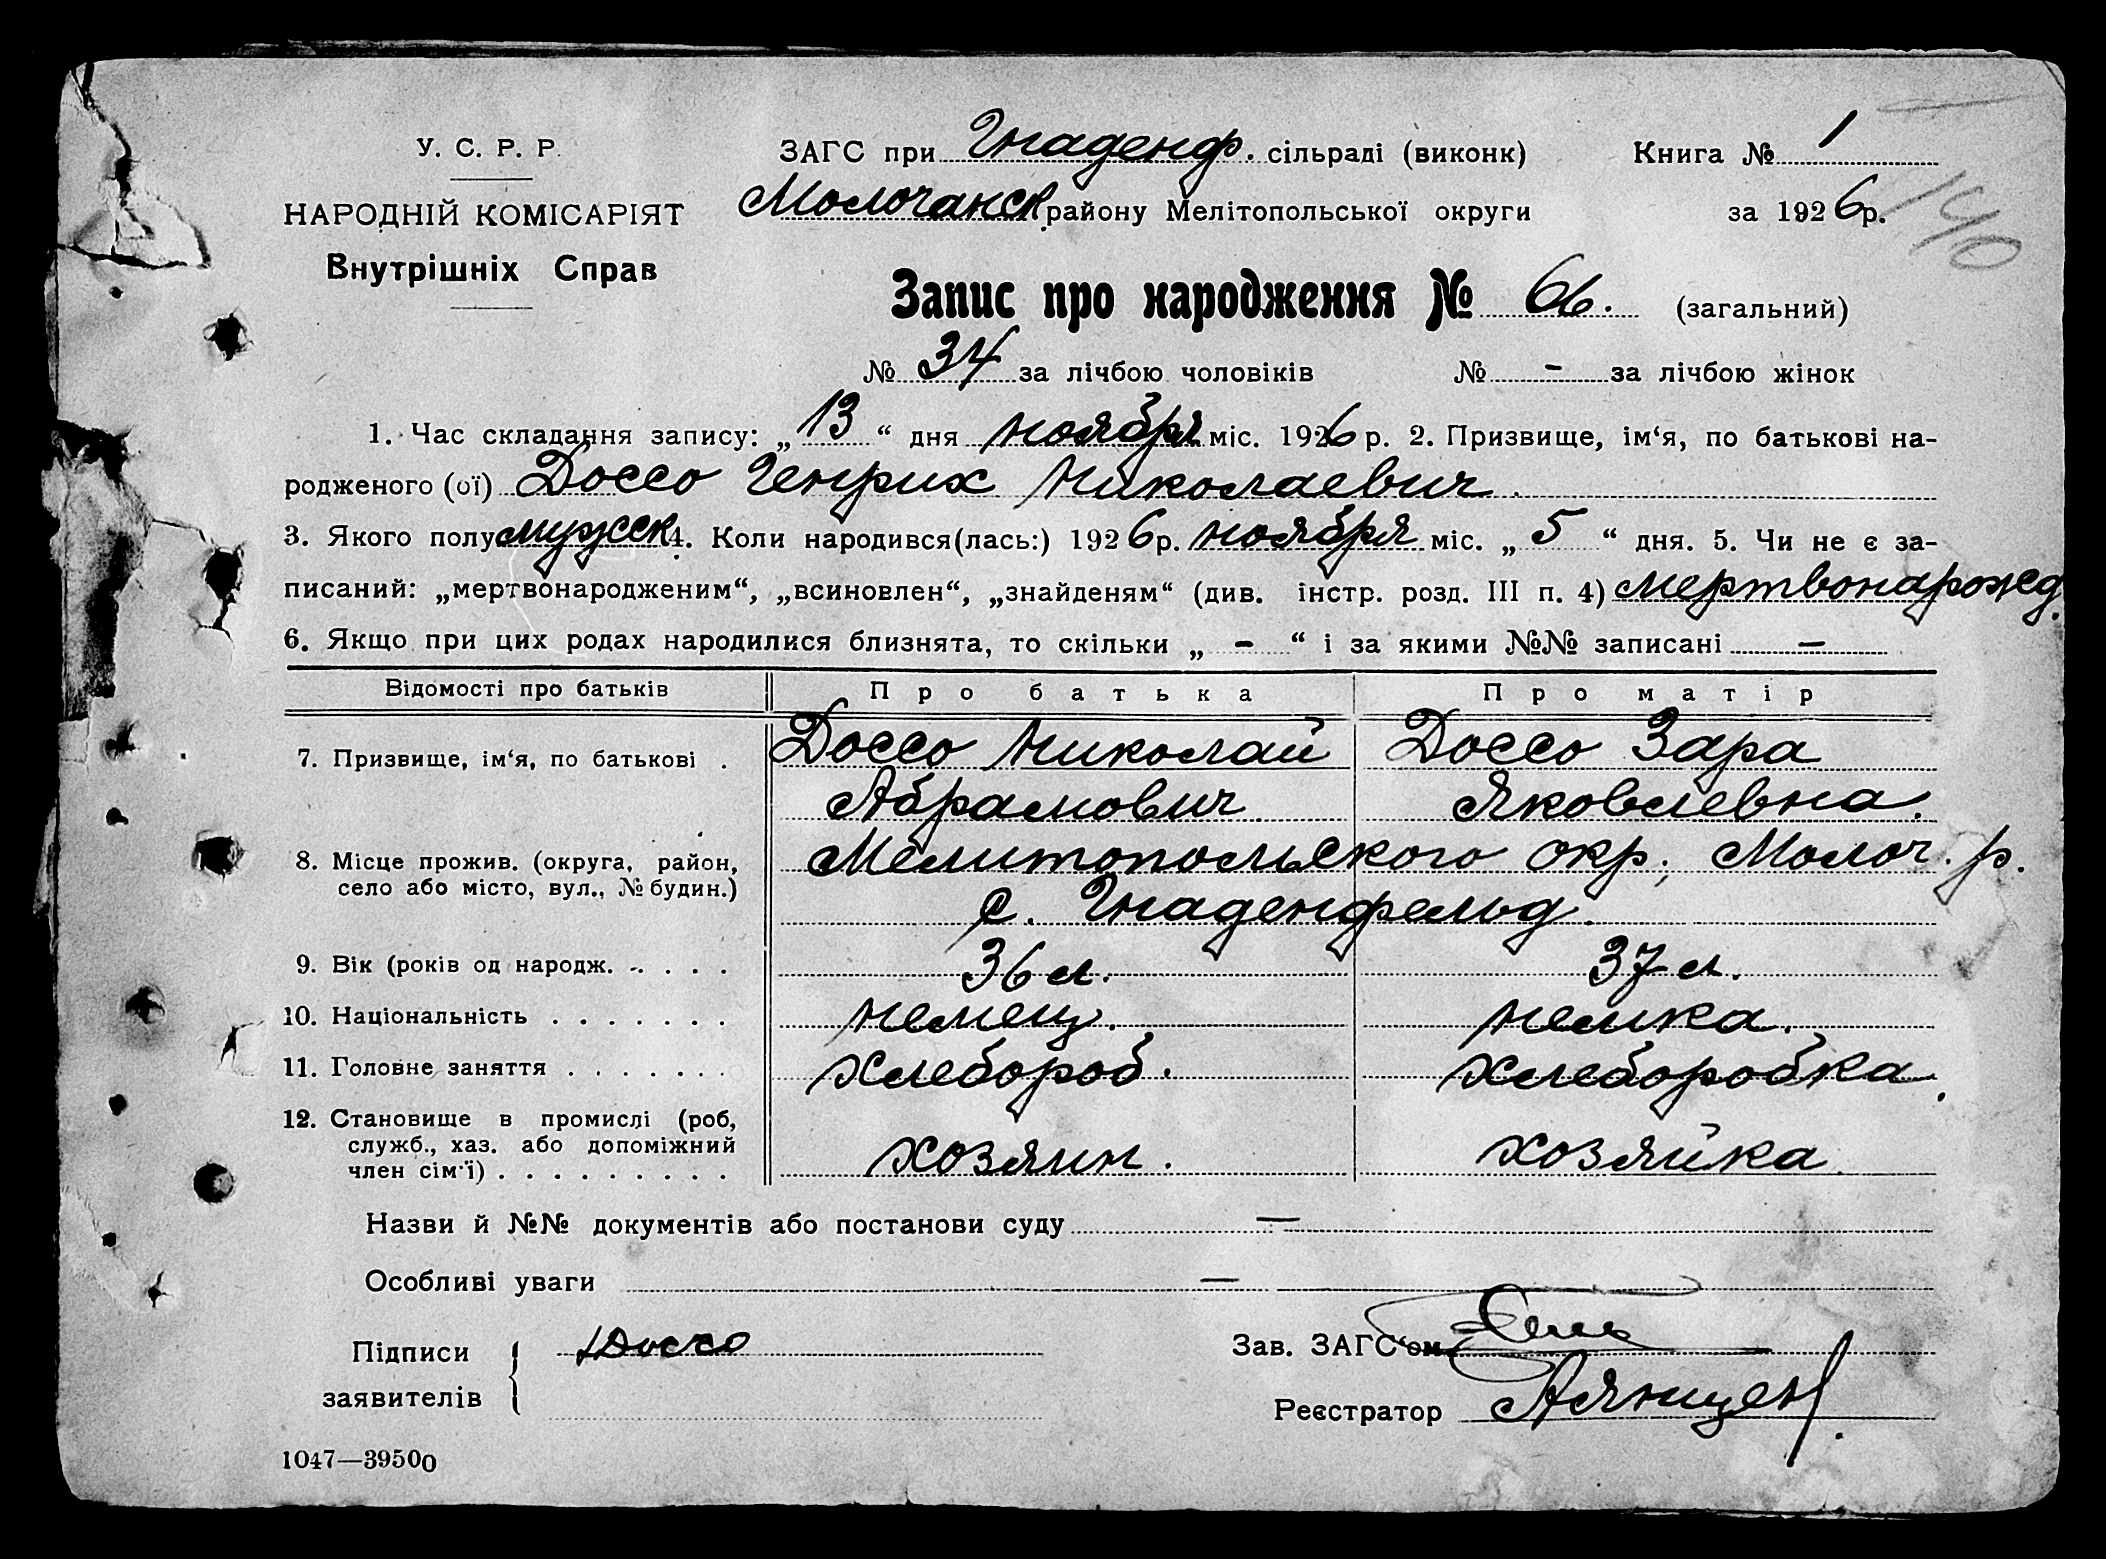 У. С. Р. Р.
НАРОДНІЙ КОМІСАРІЯТ
Внутрішніх Справ
ЗАГС при Гнаденф. сільраді (виконк)
Молочанск. району Мелітопольської округи
Книга № 1
за 1926 р.
140
Запис про народження № 66. (загальний)
№ 34 за лічбою чоловіків № - за лічбою жінок
1. Час складання запису: „13“ дня ноября міс. 1926 р. 2. Призвище, ім‘я, по батькові на-
родженого (ої) Доссо Генрих Николаевич.
3. Якого полу мужск. 4. Коли народився(лась:) 1926 р. ноября міс. „5“ дня. 5. Чи не є за-
писаний: „мертвонародженим“, „всиновлен“, „знайденям“ (див. інстр. розд. III п. 4) мертвонарожд.
6. Якщо при цих родах народилися близнята, то скільки „ - “ і за якими №№ записані —
Відомості про батьків Про батька Про матір
7. Призвище, ім‘я, по батькові . Доссо Николай Доссо Зара
Абрамович Яковлевна.
8. Місце прожив. (округа, район, Мелитопольского окр; Молоч. р.
село або місто, вул., № будин.) с. Гнаденфельд.
9. Вік (років од народж. . . . . 36 л. 37 л.
10. Національність . . . . . . . немец. немка.
11. Головне заняття . . . . . . . хлебороб. хлеборобка.
12. Становище в промислі (роб,
служб., хаз. або допоміжний
член сім‘ї) . . . . . . . . . хозяин. хозяйка.
Назви й №№ документів або постанови суду —
Особливі уваги —
Підписи
заявителів
Доссо
Зав. ЗАГС‘ом
Реєстратор
1047—39500